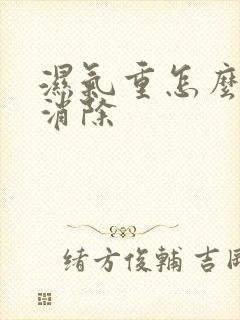 濕氣重怎麼
消除
緒方俊輔 吉岡